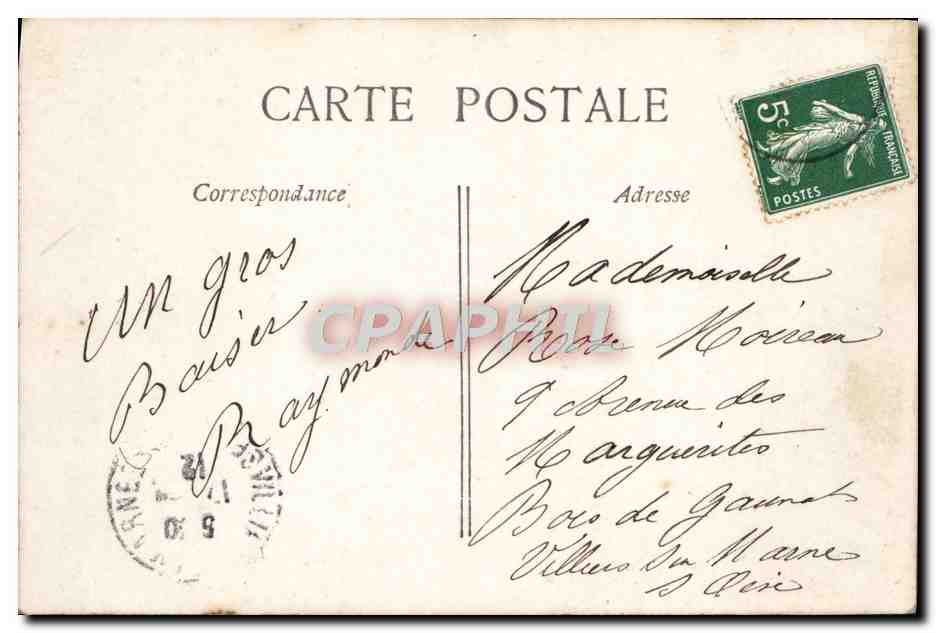 CARTE POSTALE
Correspondance
Adresse
REPUBLIQUE FRANÇAISE
5c
POSTES
Un gros
Baiser
Raymonde
Mademoiselle
Rose Moireau
9 Avenue des
Marguerites
Bois de Gaumont
Villiers Sur Marne
S Oise
CPAPHIL
12
17
5 30
MARNE